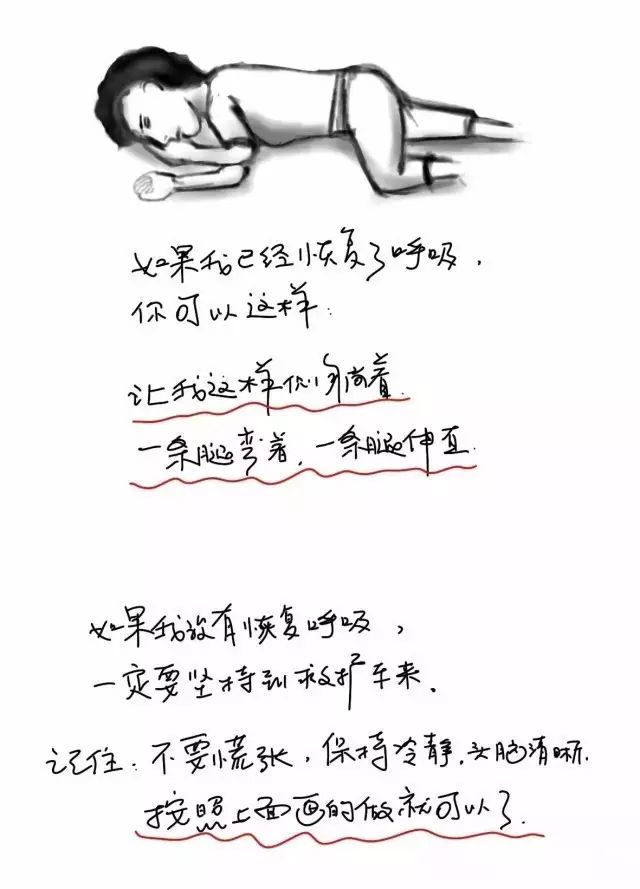 如果我已经恢复了呼吸，
你可以这样：
让我这样侧躺着.
一条腿弯着，一条腿伸直.
如果我没有恢复呼吸，
一定要坚持到救护车来.
记住：不要慌张，保持冷静.头脑清晰.
按照上面画的做就可以了.